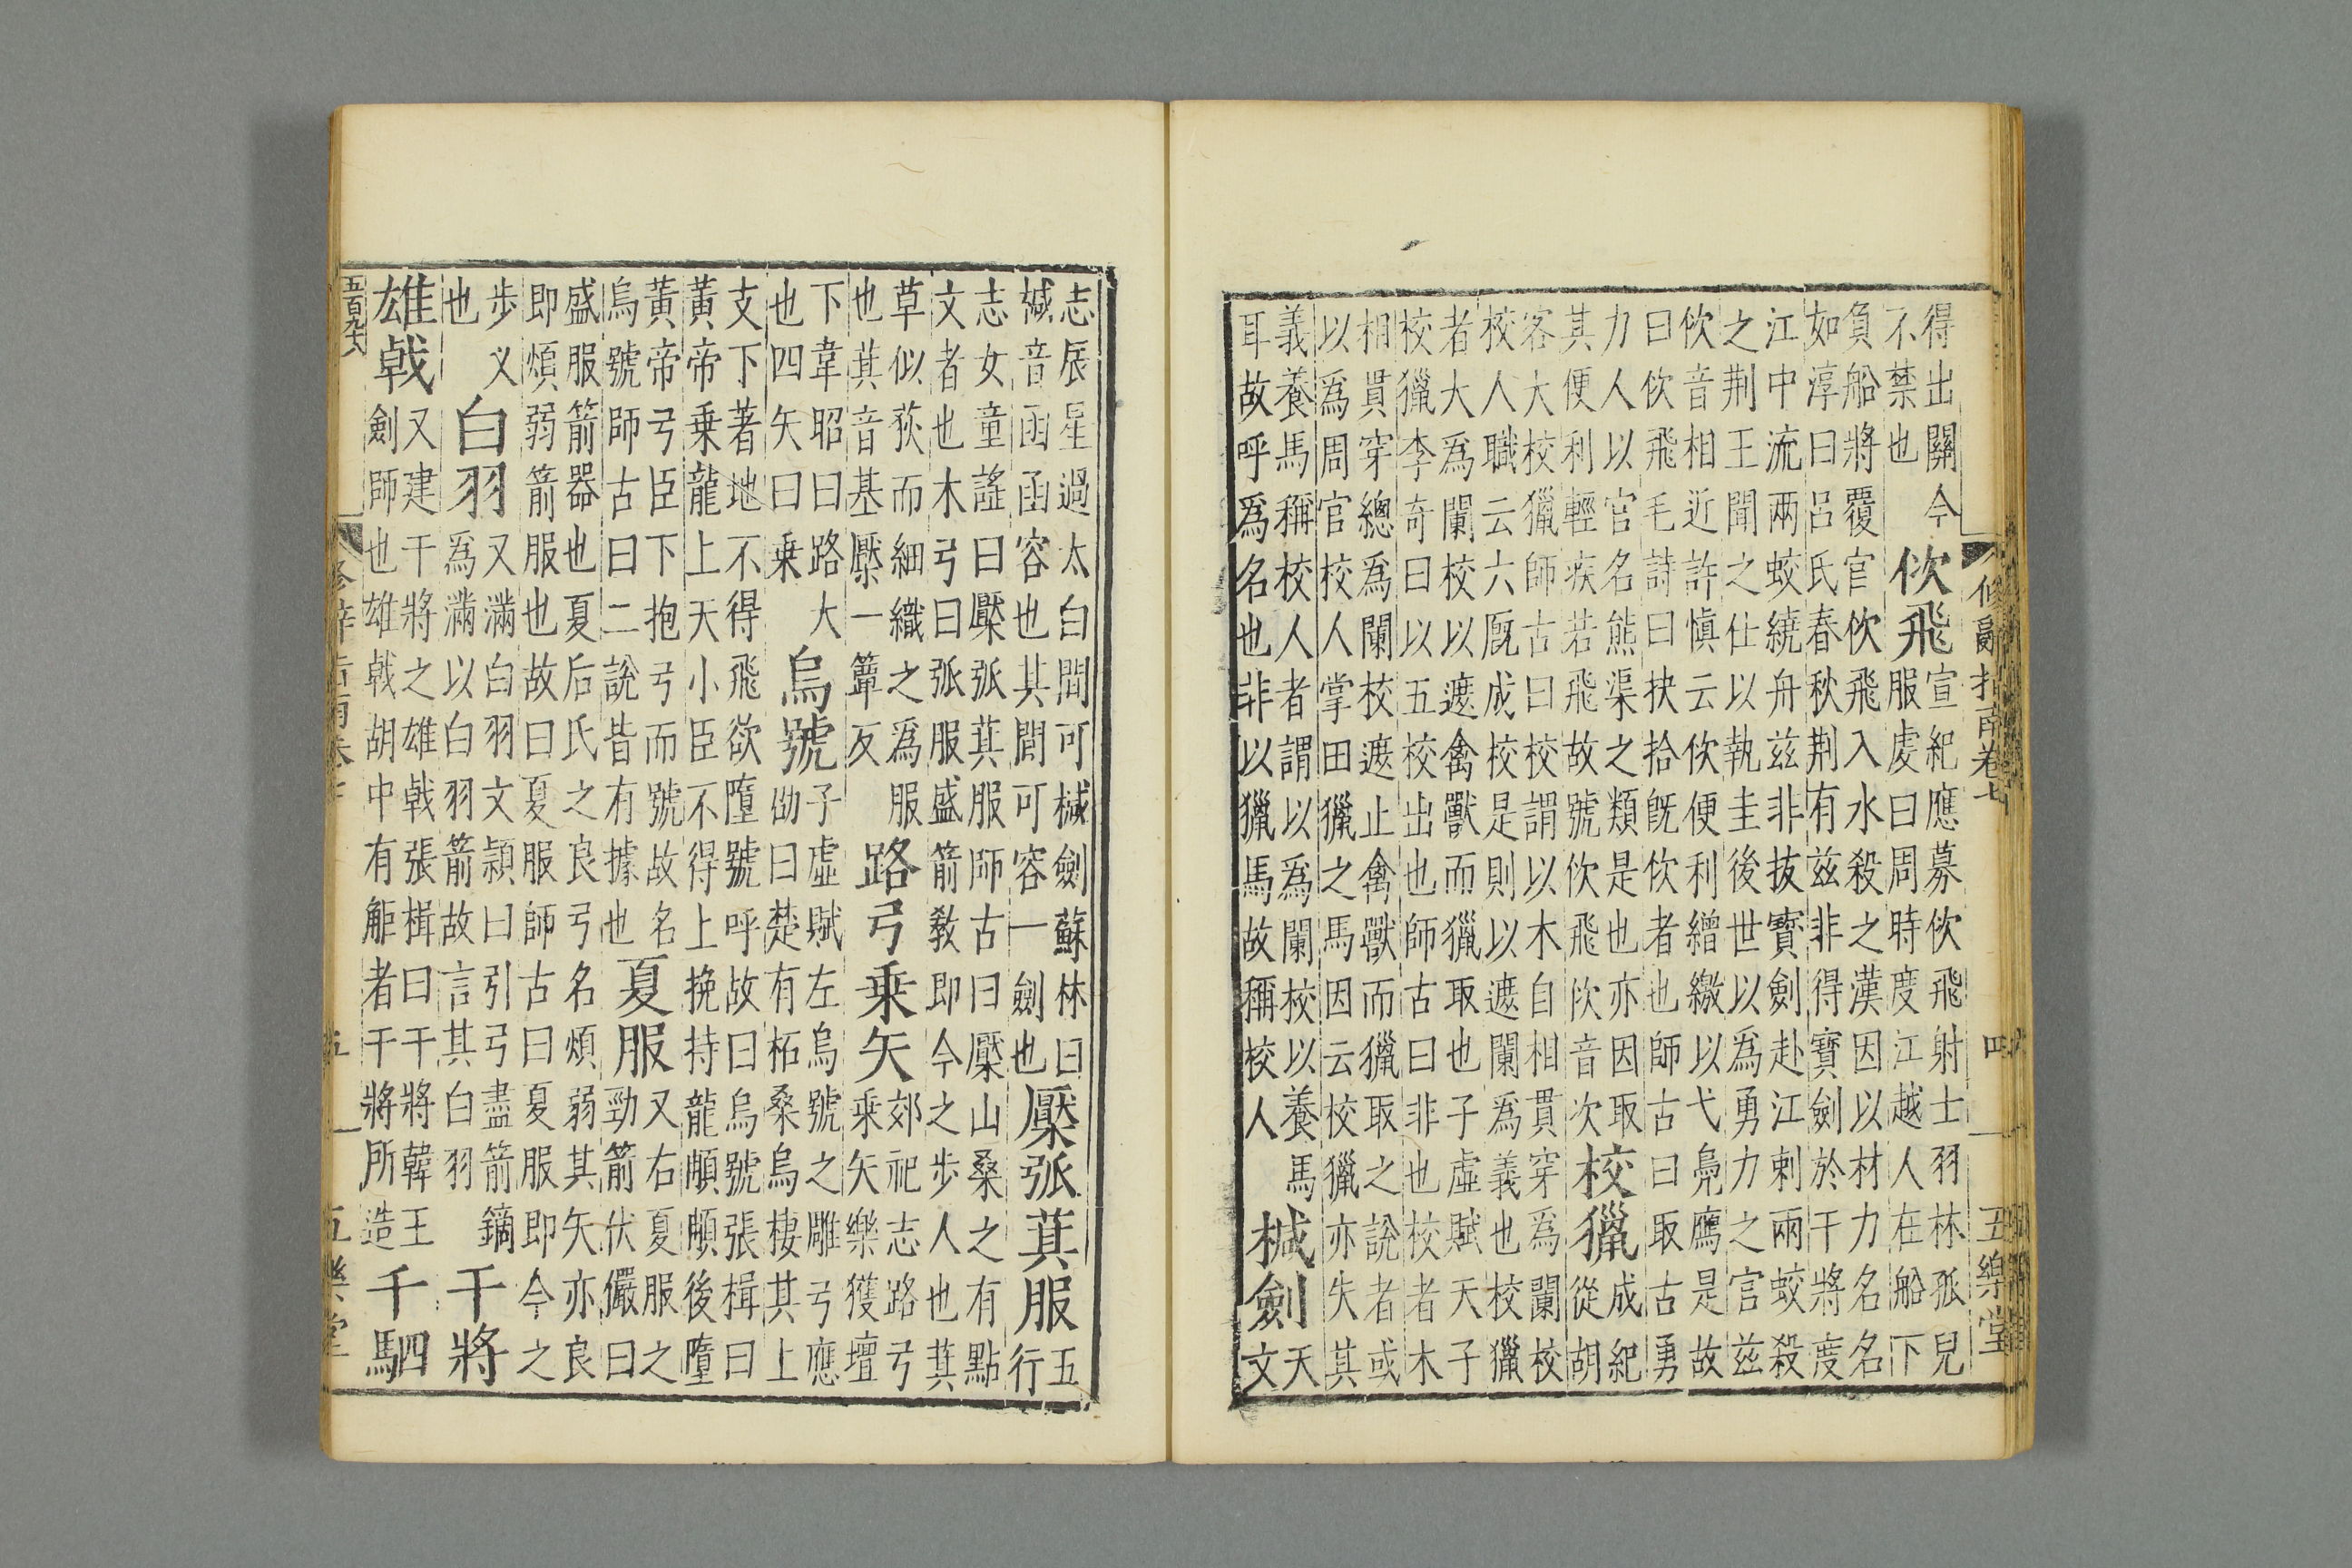 修辭指南卷七 四 五樂堂
得出關令
不禁也
佽飛
宣紀應募佽飛射士羽林孤兒
服虔曰周時度江越人在船下
負船將覆官佽飛入水殺之漢因以材力名名
如淳曰呂氏春秋荆有兹非得寶劍於干將度
江中流兩蛟繞舟兹非拔寳劍赴江刺兩蛟殺
之荆王聞之仕以執圭後世以為勇力之官兹
佽音相近許慎云佽便利繒繳以弋鳧鴈是故
曰佽飛毛詩曰抉拾旣佽者也師古曰取古勇
力人以官名熊渠之類是也亦因取
其便利輕疾若飛故號佽飛佽音次
校獵
成紀
從胡
客大校獵師古曰校謂以木自相貫穿為闌校
校人職云六厩成校是則以遮闌爲義也校獵
者大爲闌校以遮禽獸而獵取也子虛賦天子
校獵李奇曰以五校出也師古曰非也校者木
相貫穿總爲闌校遮止禽獸而獵取之說者或
以爲周官校人掌田獵之馬因云校獵亦失其
義養馬稱校人者謂以爲闌校以養馬
耳故呼爲名也非以獵馬故稱校人
椷劍
天
文
志辰星過太白間可椷劍蘇林曰
椷音函函容也其間可容一劍也
檿弧萁服
五
行
志女童謡曰檿弧萁服師古曰檿山桑之有點
文者也木弓曰弧服盛箭敎即今之步人也萁
草似荻而細織之爲服
也萁音基檿一簟反
路弓乗矢
郊祀志路弓
乗矢樂獲壇
下韋昭曰路大
也四矢曰乗
烏號
子虛賦左烏號之雕弓應
劭曰楚有柘桑烏棲其上
支下著地不得飛欲墮號呼故曰烏號張楫曰
黃帝乗龍上天小臣不得上挽持龍頔頔後墮
黃帝弓臣下抱弓而號故名
烏號師古曰二說皆有據也
夏服
又右夏服之
勁箭伏儼曰
盛服箭器也夏后氏之良弓名煩弱其矢亦良
即煩弱箭服也故曰夏服師古曰夏服即今之
步义
也
白羽
又滿白羽文頴曰引弓盡箭鏑
爲滿以白羽箭故言其白羽
干將
雄戟
又建干將之雄戟張楫曰干將韓王
劍師也雄戟胡中有鮔者干將所造
千駟
五百九十六
五 五樂堂